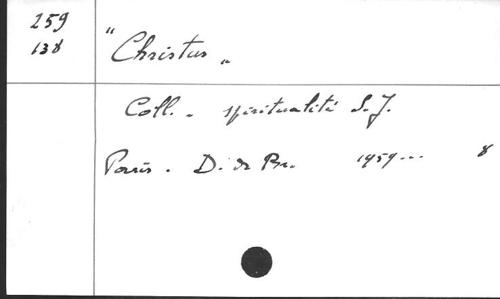 259
138
"Christus"
Coll. - spiritualité S.J.
Paris. D. de Br. 1959... 8